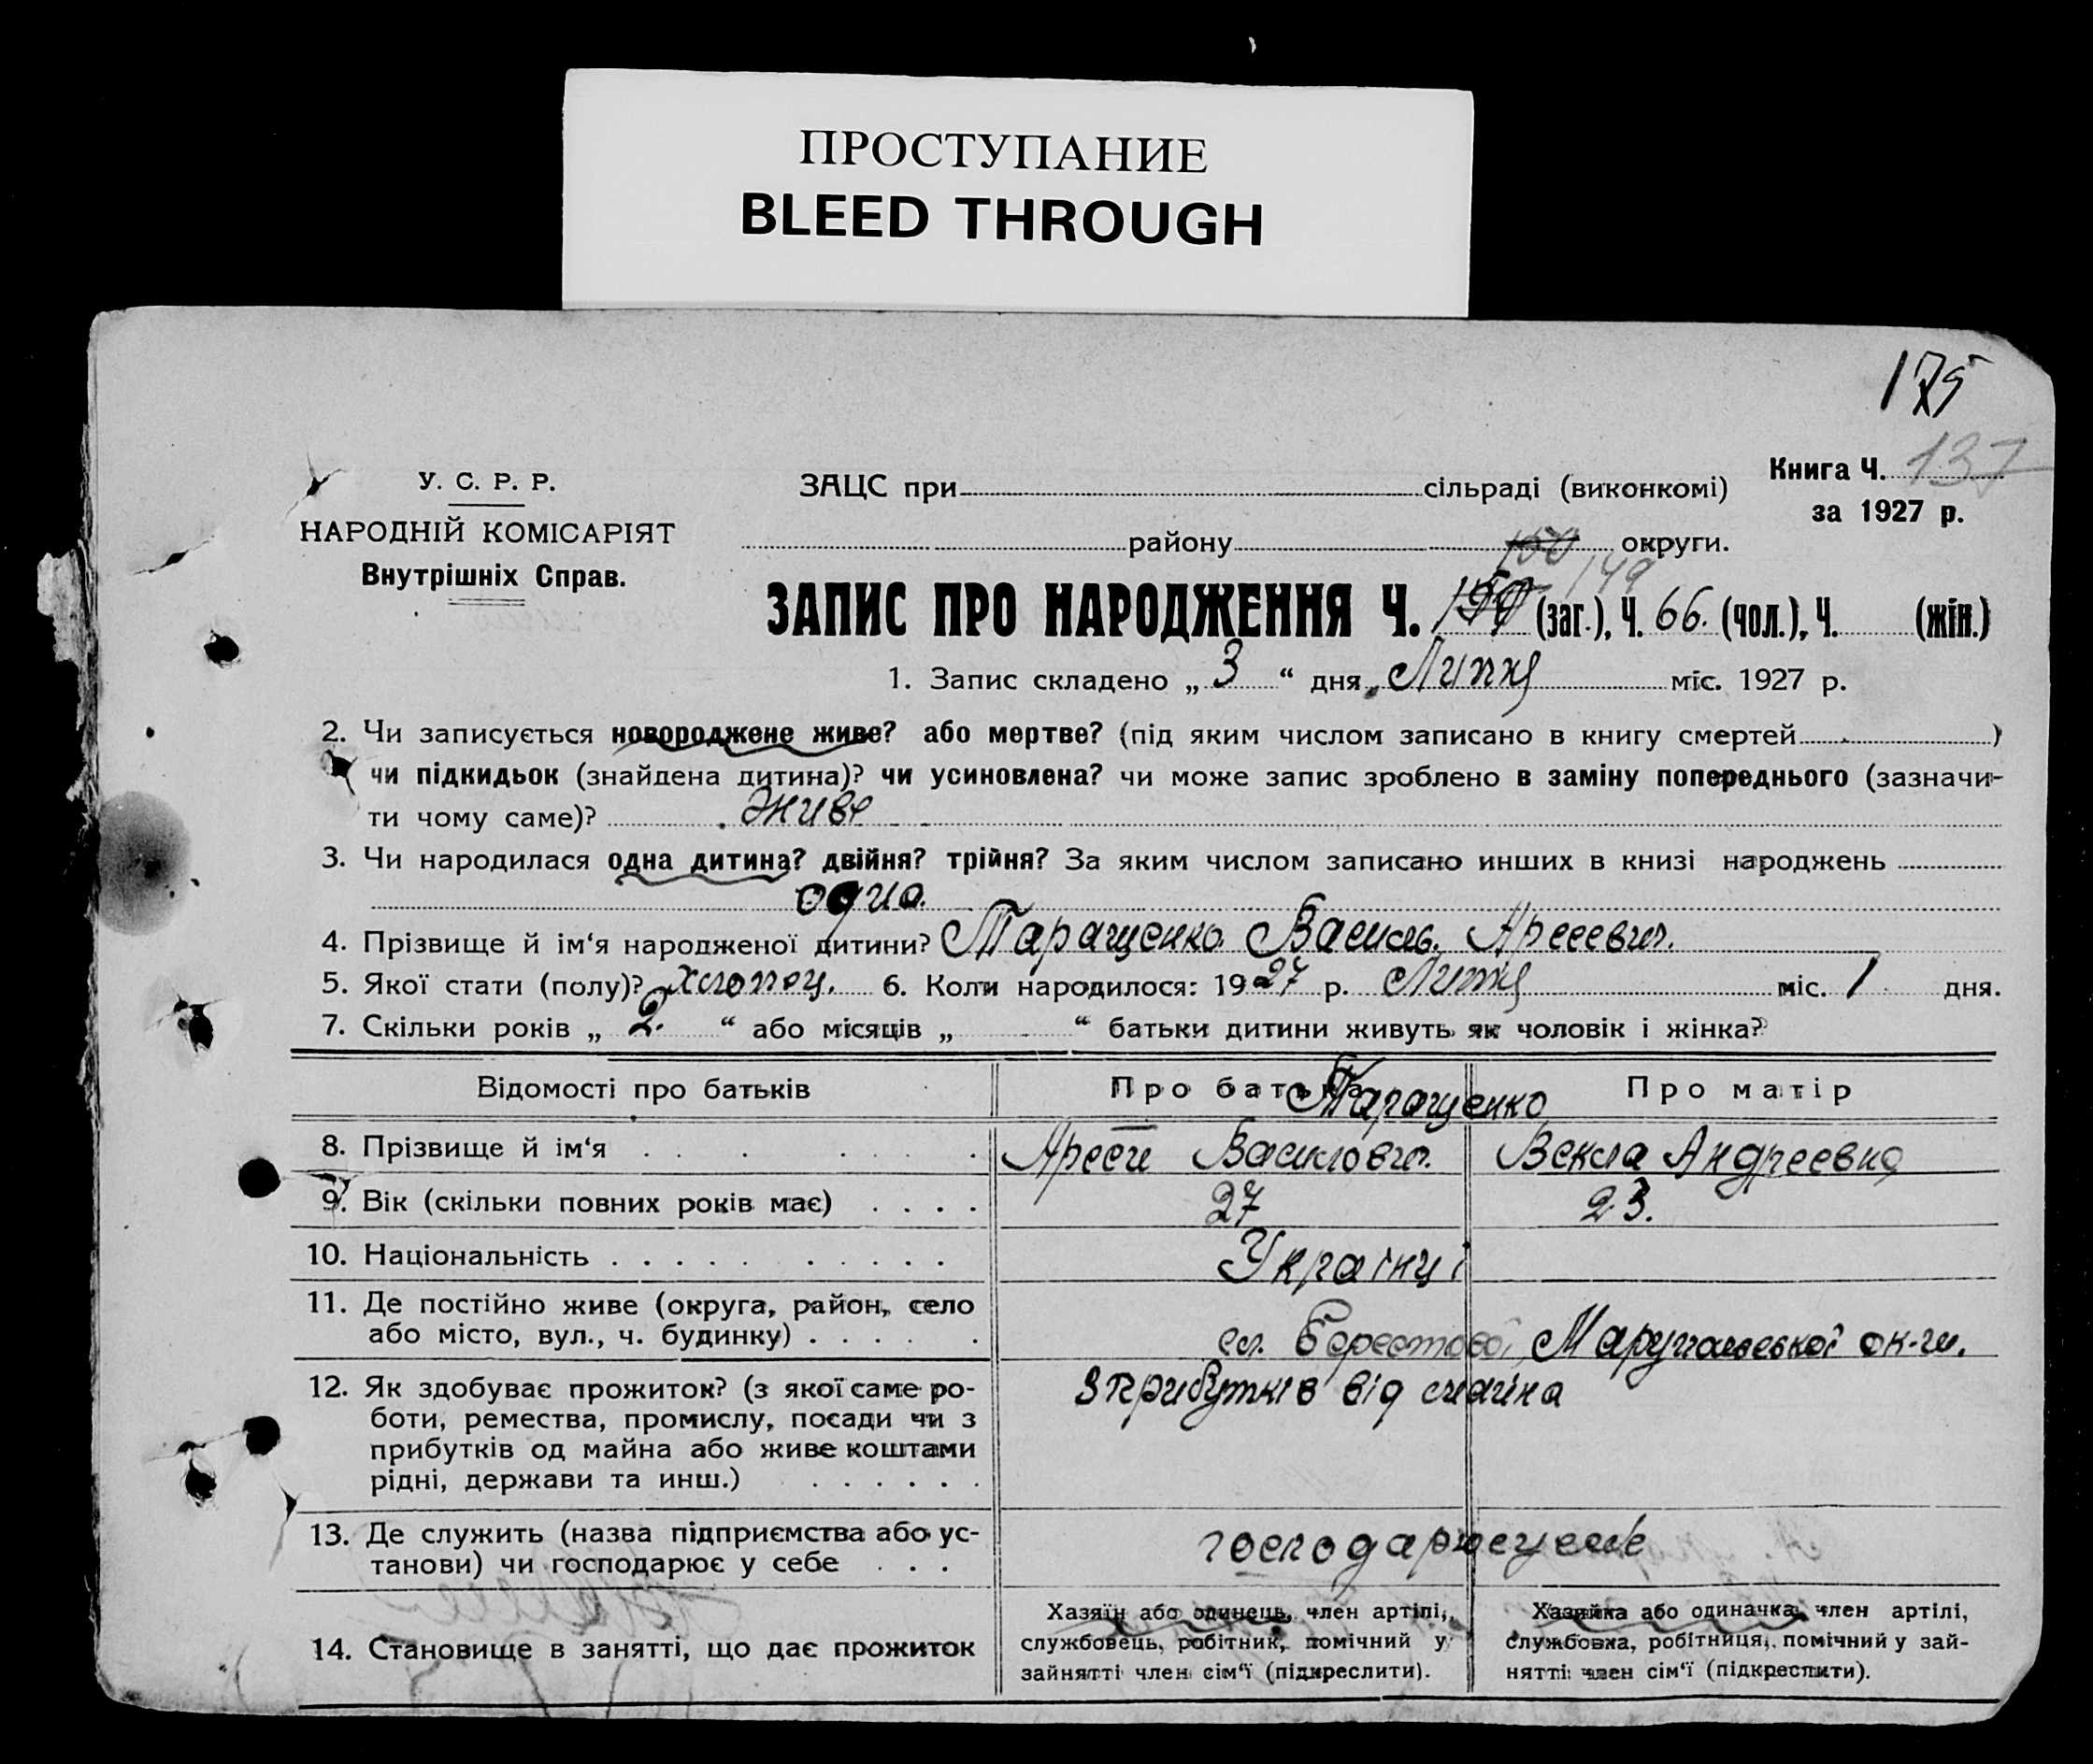 ПРОСТУПАНИЕ
BLEED THROUGH
175
У. С. Р. Р.
НАРОДНІЙ КОМІСАРІЯТ
Внутрішніх Справ.
ЗАЦС при сільраді (виконкомі)
Книга Ч. 137
за 1927 р.
району 150 округи.
149
ЗАПИС ПРО НАРОДЖЕННЯ Ч. (заг.), Ч. 66. (чол.), Ч. (жін.)
1. Запис складено „ 3 “ дня Липня міс. 1927 р.
2. Чи записується новороджене живе? або мертве? (під яким числом записано в книгу смертей )
чи підкидьок (знайдена дитина)? чи усиновлена? чи може запис зроблено в заміну попереднього (зазначи-
ти чому саме)? живе
3. Чи народилася одна дитина? двійня? трійня? За яким числом записано инших в книзі народжень
одна.
4. Прізвище й ім‘я народженої дитини? Таращенко Василь. Арсеевич.
5. Якої стати (полу)? хлопец. 6. Коли народилося: 1927 р. Липня міс. 1 дня.
7. Скільки років „ 2. “ або місяців „ “ батьки дитини живуть як чоловік і жінка?
Відомості про батьків Про батька Про матір
Таращенко
8. Прізвище й ім‘я Арсен Василович. Векла Андреевна
9. Вік (скільки повних років має) 27 23.
10. Національність Українці
11. Де постійно живе (округа, район, село
або місто, вул., ч. будинку) сл. Берестової, Марупольської ок-ги.
12. Як здобуває прожиток? (з якої саме ро-
боти, ремества, промислу, посади чи з
прибутків од майна або живе коштами
рідні, держави та инш.)
з прибутків від майна
13. Де служить (назва підприємства або ус-
танови) чи господарює у себе
господарює у себе
14. Становище в занятті, що дає прожиток
Хазяїн або одинець, член артілі,
службовець, робітник, помічний у
зайнятті член сім‘ї (підкреслити).
Хазяйка або одиначка, член артілі,
службовка, робітниця, помічний у зай-
нятті член сім‘ї (підкреслити).